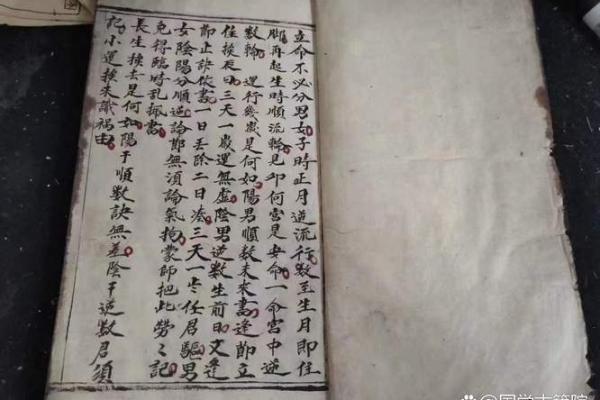 立命不必分男女子時正月逆流行數至生月即住
脚再起生時順流輪見卯何宮是安命一命宮中逆
數輪運行幾歲是何如陽男順數未來書逢節立
住挨辰三天一歲運無虛陰男逆數生前文逢
節止訣依書一日丟除二日湊三天一任君驅男
女陰陽分順逆論節無須論氣拘蒙師把此勞々記
免得臨時乱振書
長生挨去是何如陽干順數訣無差陰干逆數君須
記小運挨來識禍由
国学古籍院